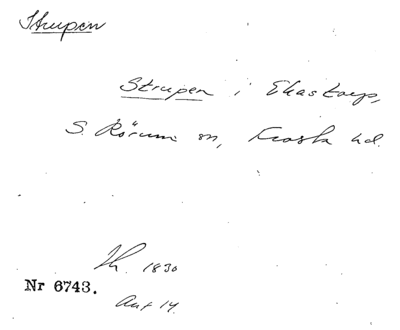 Strupen
Strupen i Ekastorp,
S. Rörum sn, Frosta hd.
1830
Nr 6743.
Ant 14.